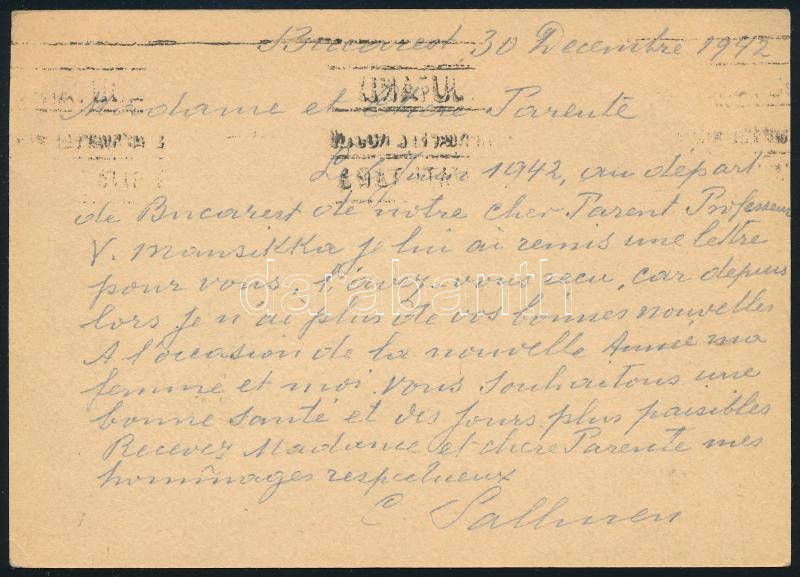 Bucarest 30 Decembre 1942
Madame et Chère Parente
Le Juin 1942, au départ
de Bucarest de notre cher Parent Professeur
V. Mansikka je lui ai remis une lettre
pour vous, l'avez-vous reçu, car depuis
lors je n'ai plus de vos bonnes nouvelles
A l'occasion de la nouvelle Année ma
femme et moi vous souhaitons une
bonne santé et des jours plus paisibles
Recevez Madame et chère Parente mes
hommages respectueux
C Sallmen
darabanth